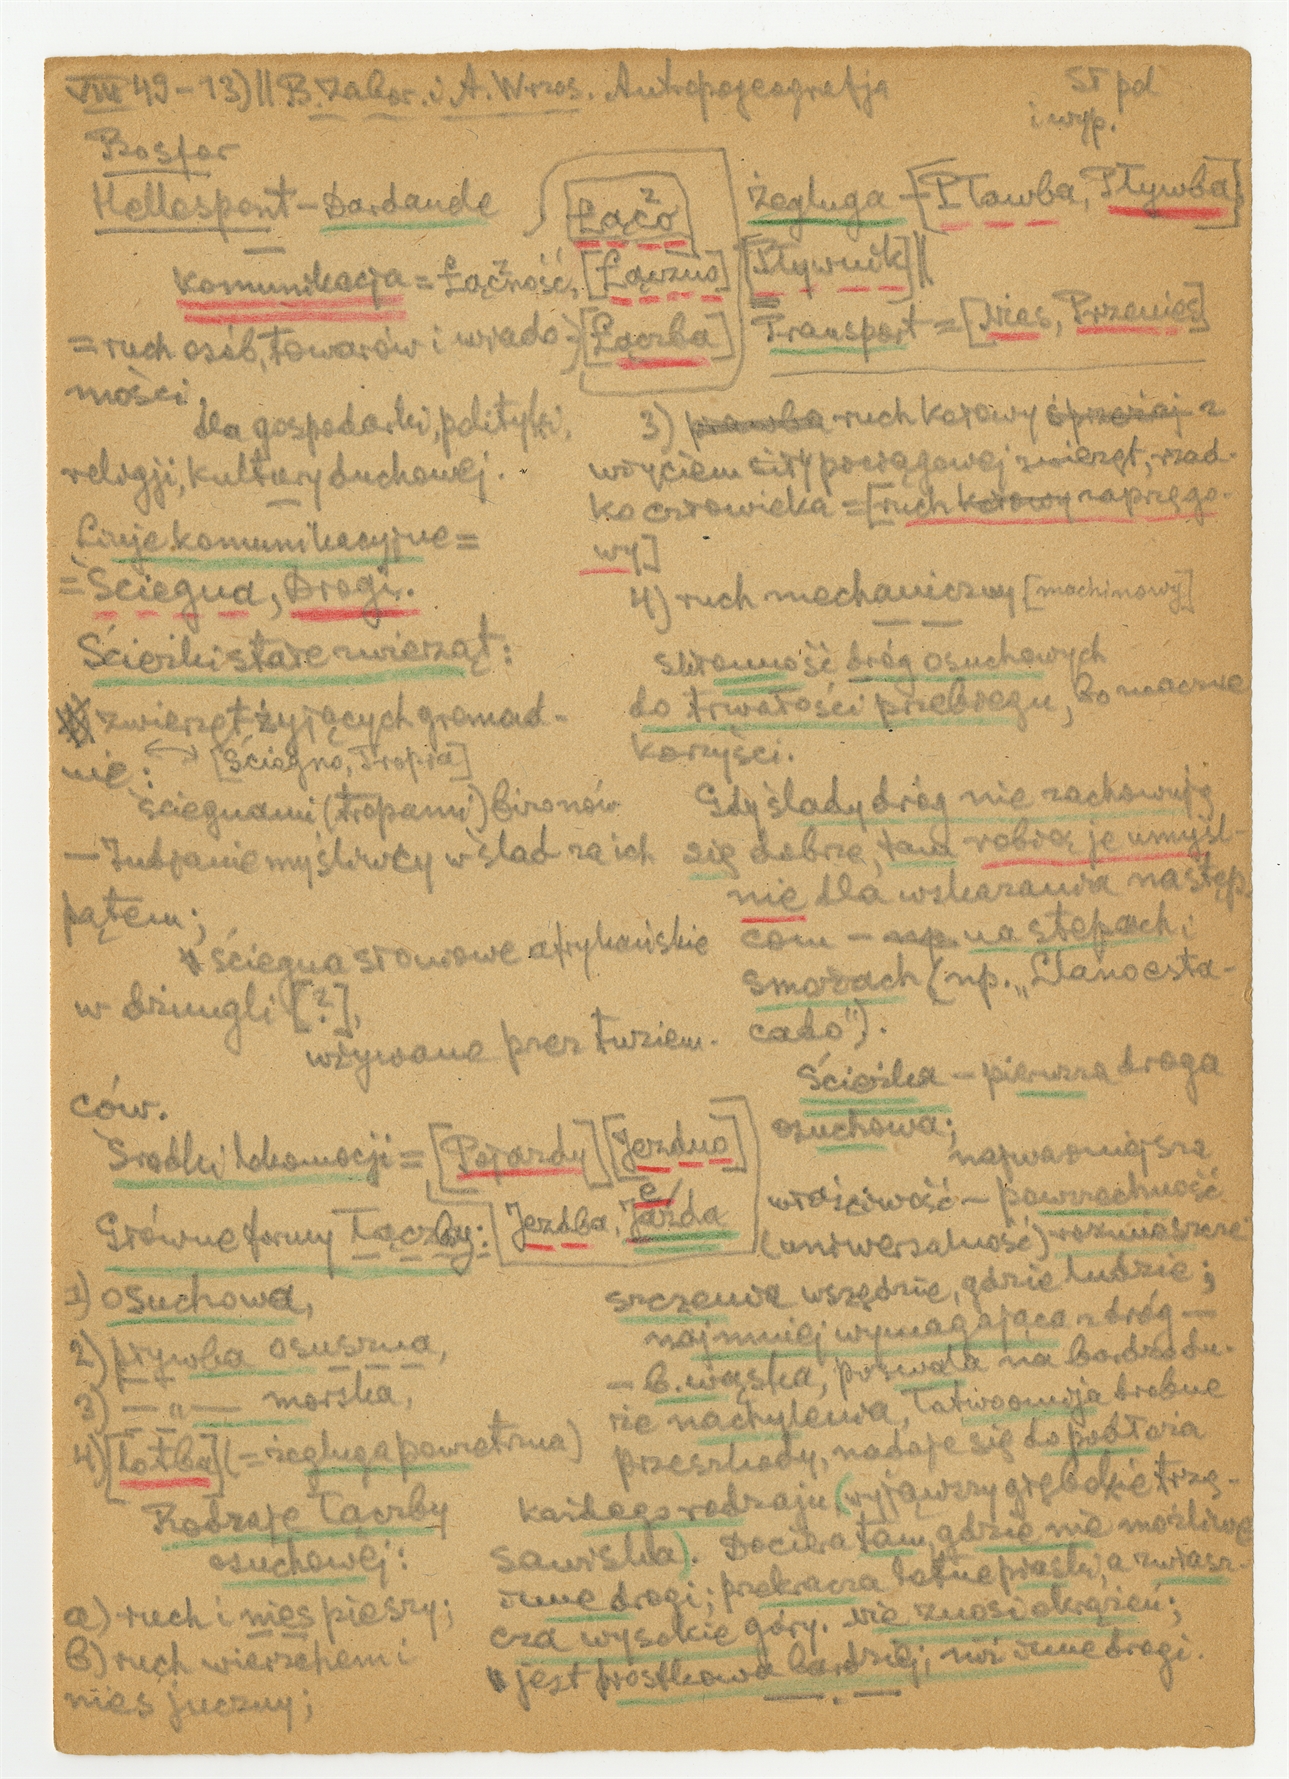 VIII 49 – 13) || B. Zabor. i A. Wrzos. Antropogeografja
St pol
i wyp.
Bosfor
Hellespont – Dardanele
Łąčo
Komunikacja = Łąčność, [Łączno]
= ruch osób, towarów i wiado- [Łączba]
mości,
dla gospodarki, polityki,
religji, kultury duchowej.
Linje komunikacyjne =
= Ściegna, Drogi.
Ścieżki stałe zwierząt:
zwierząt żyjących gromad-
nie: [Ściegno, Tropia]
ściegnami (tropami) bizonów
– Indjanie myśliwcy w ślad za ich
pątem;
ściegna słoniowe afrykańskie
w dżungli [?],
używane przez tuziem-
ców.
Środki lokomocji = [Pojazdy] [Jezdno]
Główne formy Łączby: Jezdba, Jazda
e
1) osuchowa,
2) pływba osuszna,
3) — „ — morska,
4) [lotba] (= żegluga powietrzna)
Rodzaje łączby
osuchowej:
a) ruch i nies pieszy;
b) ruch wierzchem i
nies juczny;
żegluga – [Pławba, Pływba],
[Pływnik] ||
Transport = [Nies, Przenies]
3) prawba ruch kołowy sprzężaj z
użyciem siły pociągowej zwierząt, rzad-
ko człowieka = [ruch kołowy zaprzęgo-
wy]
4) ruch mechaniczny [machinowy]
skłonność dróg osuchowych
do trwałości przebiegu, bo znaczne
korzyści.
Gdy ślady dróg nie zachowują
się dobrze, tam robią je umyśl-
nie dla wskazania następ-
com – np. na stepach i
smożach (np. „Llano esta-
cado").
Ścieżka – pierwsza droga
osuchowa;
najważniejsza
właściwość – powszechność
(uniwersalność) rozmieszcze
szczenia wszędzie, gdzie ludzie;
najmniej wymagająca z dróg —
– b. wąska, pozwala na bardzo du-
że nachylenia, łatwo omija drobne
przeszkody, nadaje się do podłoża
każdego rodzaju (wyjąwszy grębokie trzę-
sawiska). Dociera tam, gdzie nie możliwe
inne drogi; przekracza lotne piaski, a zwłasz-
cza wysokie góry. Nie znosi okrążeń;
jest prostkowa bardziej, niż inne drogi.